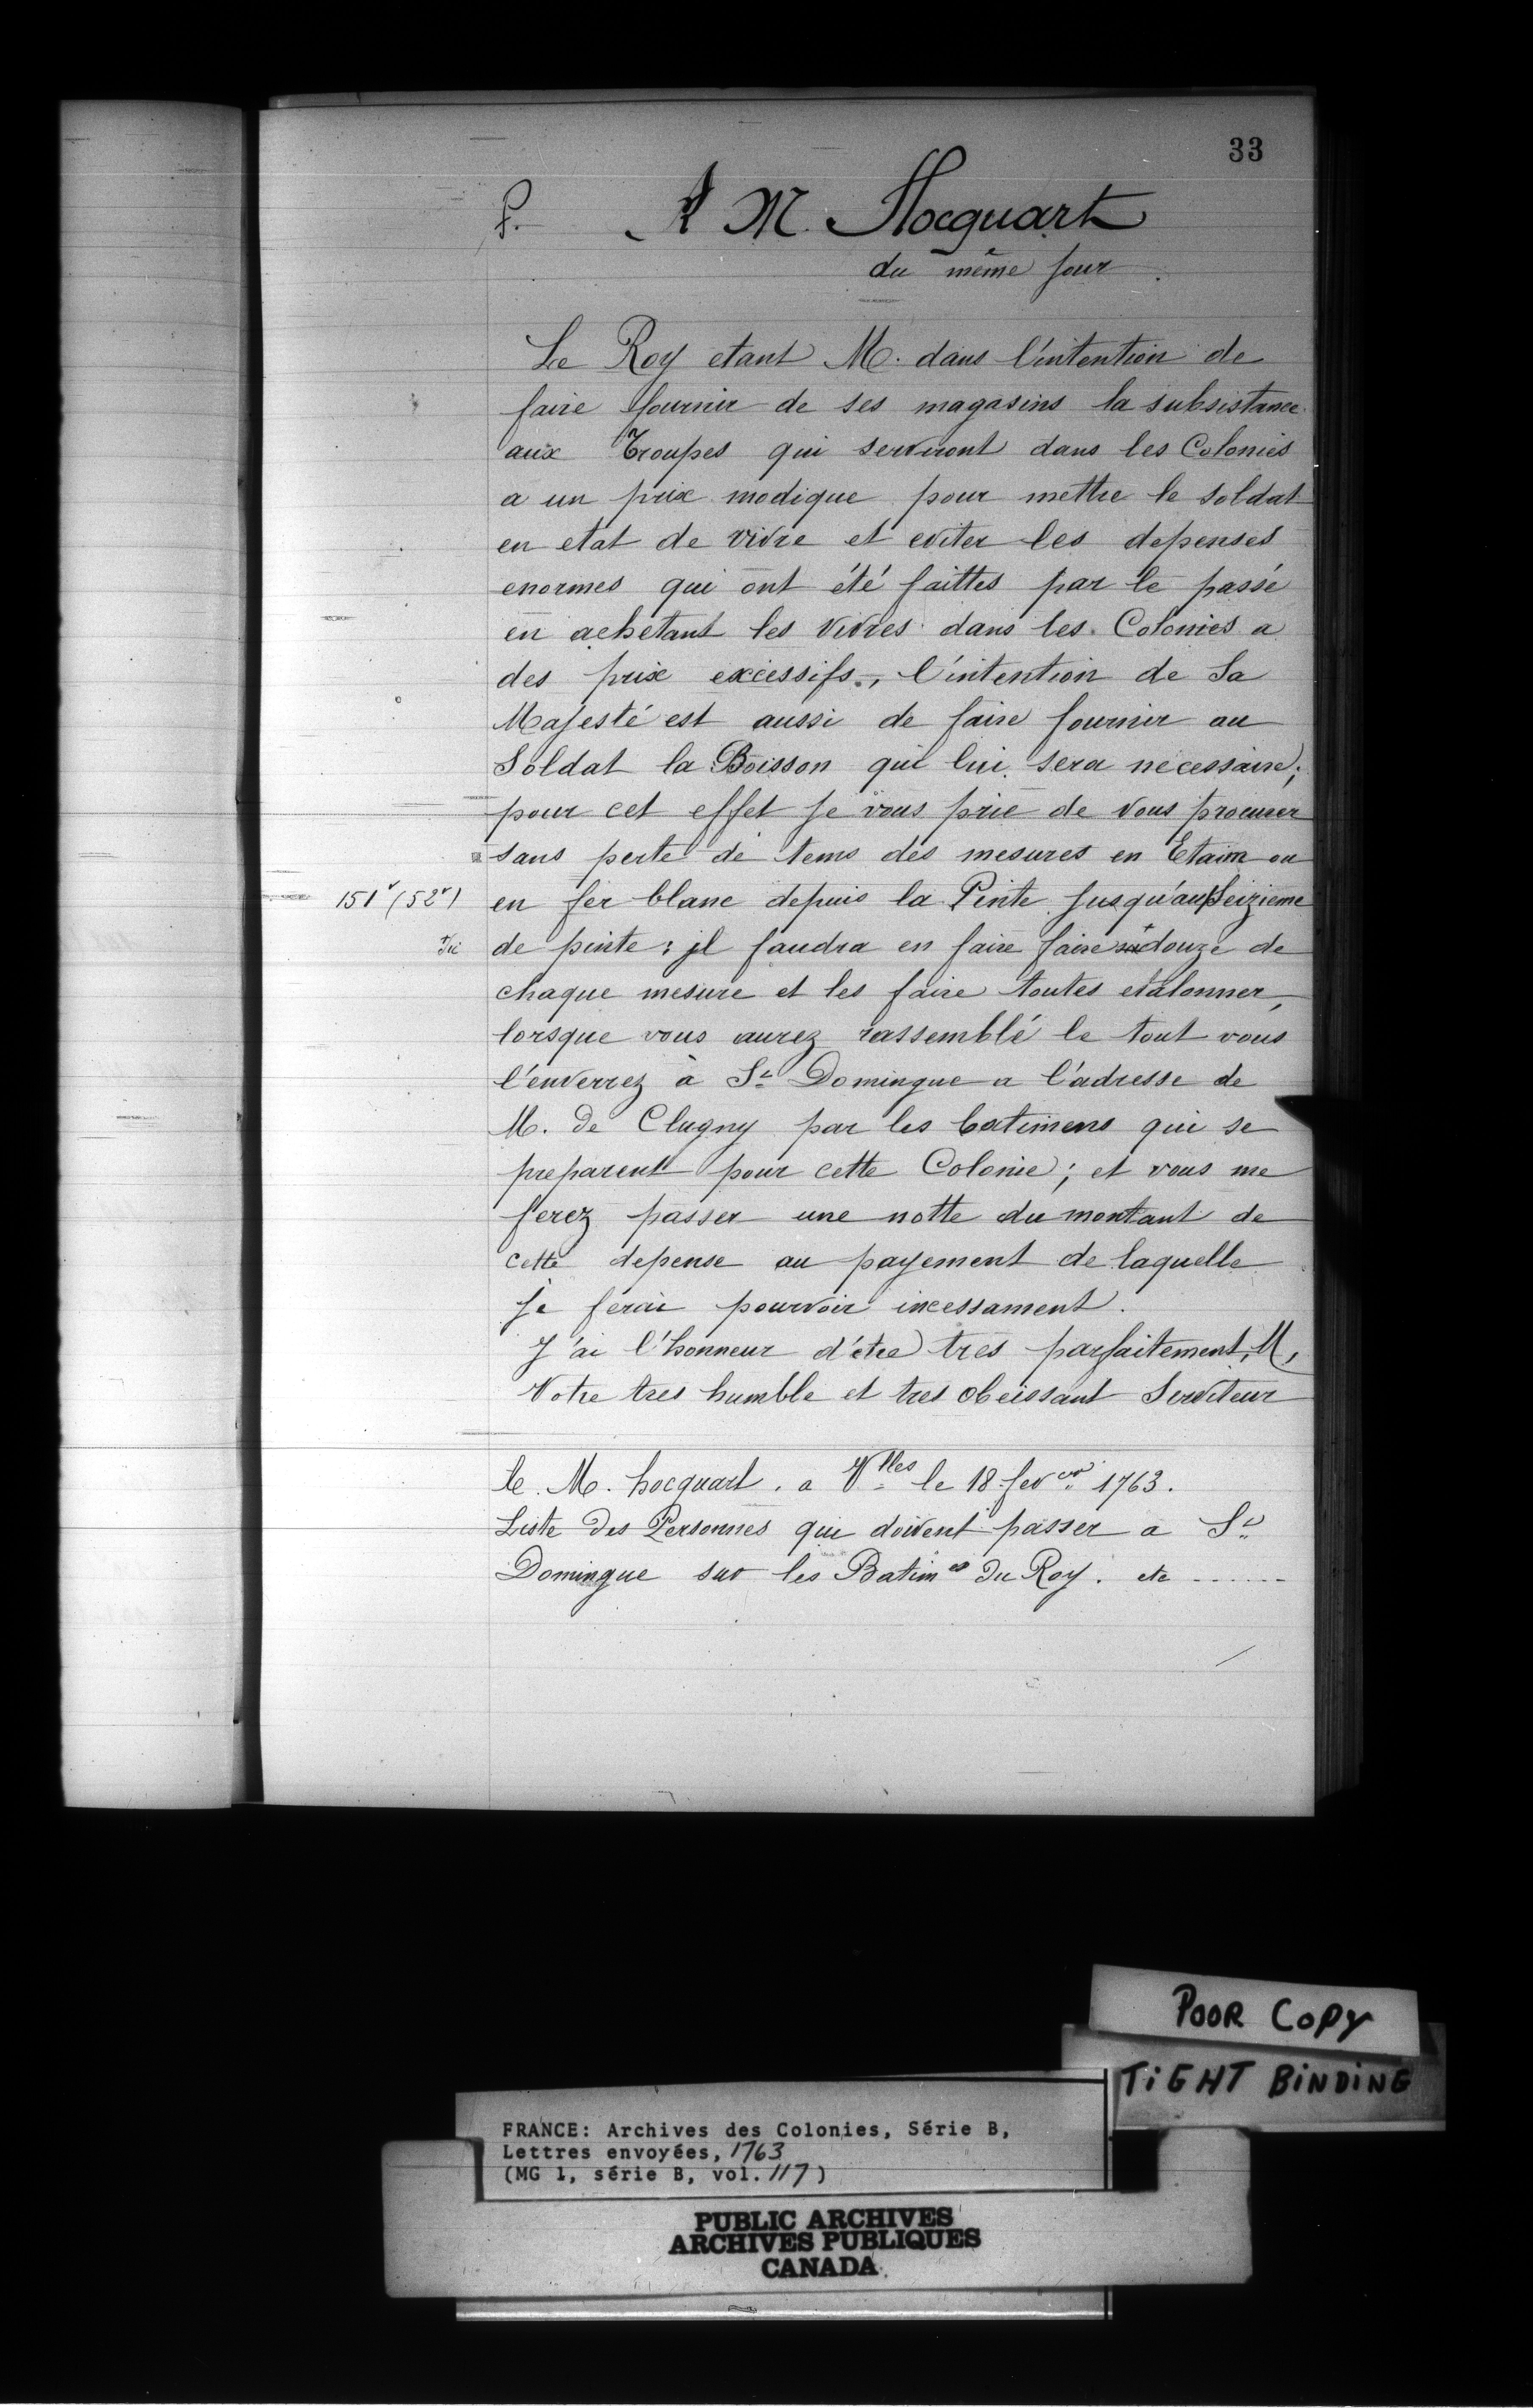 33
P. A M. Hocquart
du même jour
Le Roy etant M. dans l'intention de
faire fournir de ses magasins la subsistance
aux Troupes qui serviront dans les Colonies
a un prix modique pour mettre le soldat
en etat de vivre et eviter les depenses
enormes qui ont été faittes par le passé
en achetant les vivres dans les Colonies a
des prix excessifs, l'intention de Sa
Majesté est aussi de faire fournir au
Soldat la Boisson qui lui sera necessaire;
pour cet effet je vous prie de vous procurer
sans perte de tems des mesures en Etaim ou
151v (52v) en fer blanc depuis la Pinte jusqu'au Seizieme
de pinte: il faudra en faire faire douze de
chaque mesure et les faire toutes etalonner,
lorsque vous aurez rassemblé le tout vous
l'enverrez à St Domingue a l'adresse de
M. de Clugny par les batimens qui se
preparent pour cette Colonie; et vous me
ferez passer une notte du montant de
cette depense au payement de laquelle
je ferai pourvoir incessament.
J'ai l'honneur d'etre tres parfaitement, M,
Votre tres humble et tres obeissant Serviteur
M. hocquart. a Vlles le 18 fevrer 1763.
Liste des Personnes qui doivent passer a St
Domingue sur les Batimes du Roy. etc ......
POOR COPY
TIGHT BINDING
FRANCE: Archives des Colonies, Série B,
Lettres envoyées, 1763
(MG 1, série B, vol. 117)
PUBLIC ARCHIVES
ARCHIVES PUBLIQUES
CANADA